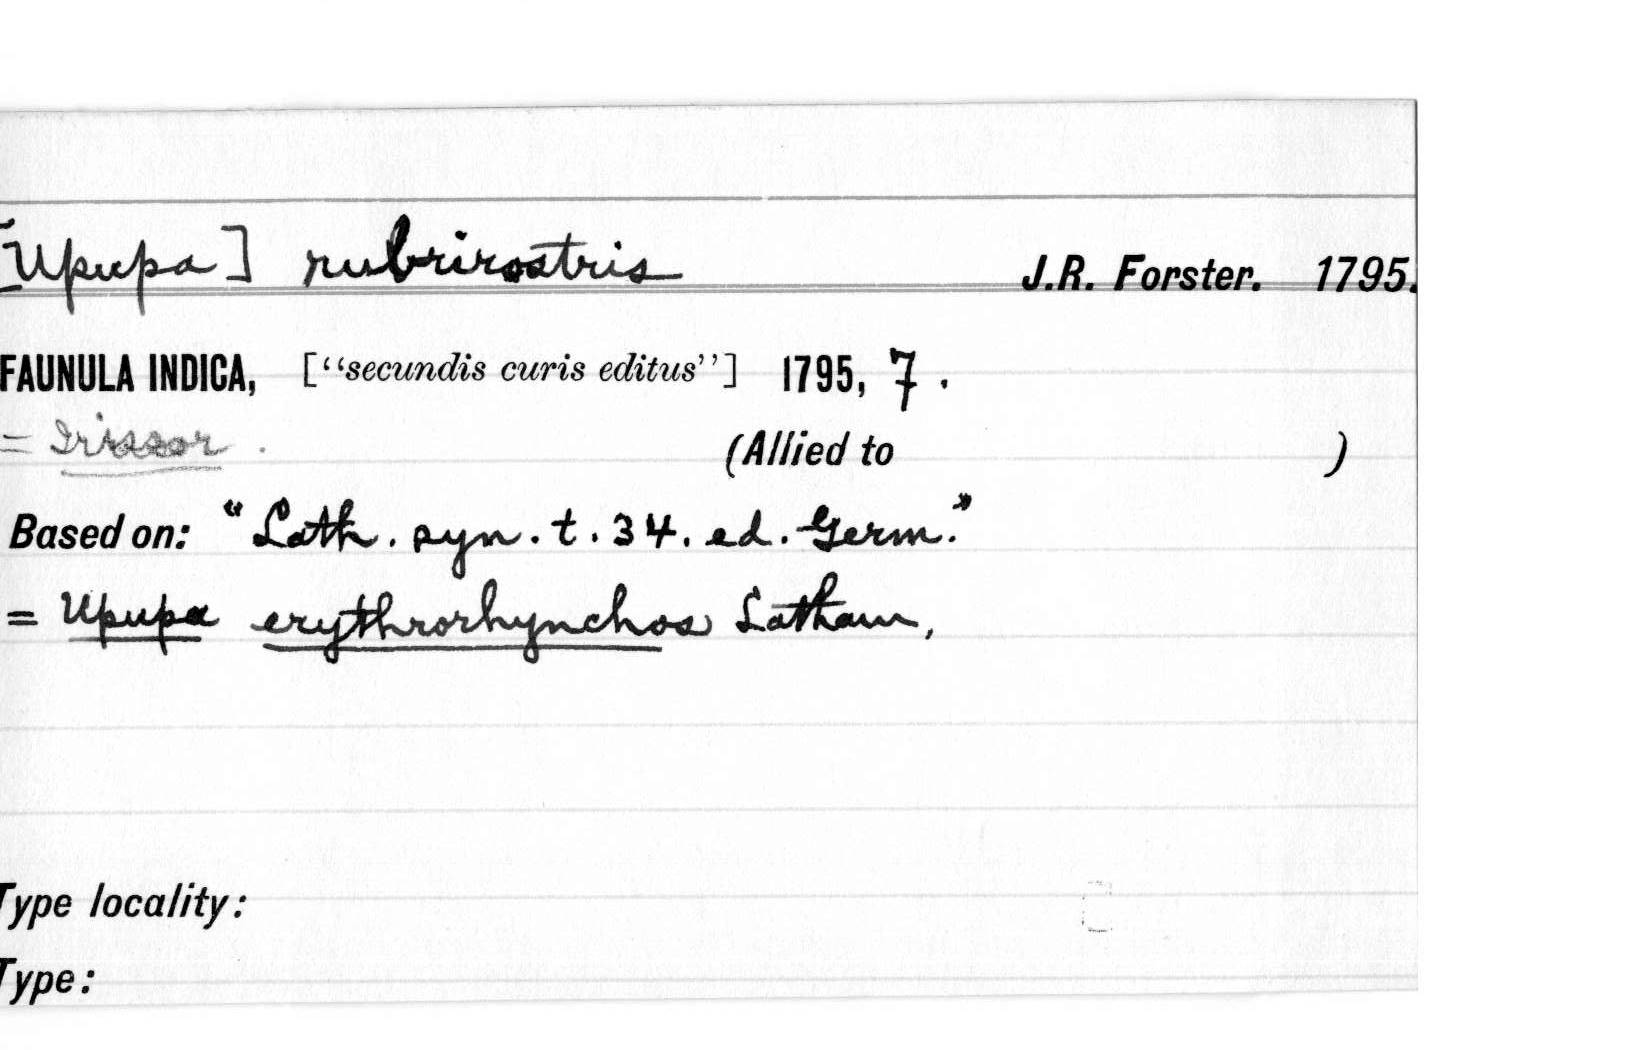 [Upupa] rubrirostris J.R. Forster. 1795.
FAUNULA INDICA, ["secundis curis editus"] 1795, 7.
= Irissor. (Allied to )
Based on: "Lath. syn. t. 34. ed. Germ."
= Upupa erythrorhynchos Latham,
Type locality:
Type: